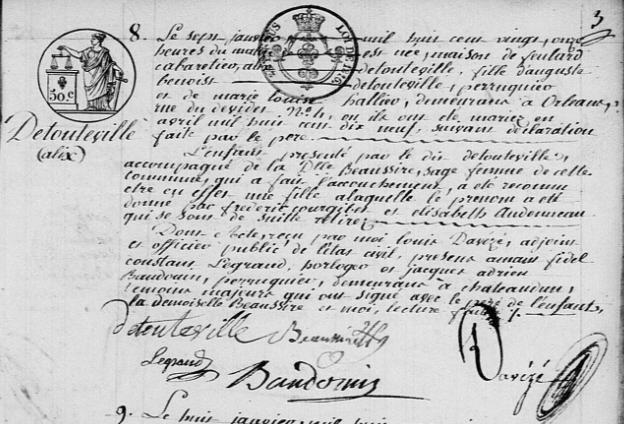 3
8. Le sept janvier mil huit cent vingt, onze
heures du matin est née, maison de foulard
cabaretier, alix detouteville, fille d'auguste
benoist detouteville, perruquier
et de marie louise hallier, demeurans à Orleans,
rue du devidet N.° 4, ou ils ont été mariés en
avril mil huit cent dix neuf, suivant déclaration
faite par le père.
50 c
Detouteville
(alix)
L'enfant présenté par le dit detouteville,
accompagné de la Dlle Beaussire, sage femme de cette
commune, qui a fait l'accouchement, a été reconnu
etre en effet une fille a laquelle le prenom a été
donné par frederic courgibet et elisabeth Audonneau
qui se sont de suite retirés
Dont acte, reçu par moi louis Davézé, adjoint
et officier public de l'état civil, présens amant fidel
constant Legrand, horloger et jacques adrien
Baudouin, perruquier, demeurans à chateaudun,
temoins majeurs qui ont signé avec le père de l'enfant,
la demoiselle Beaussire et moi, lecture faite ./.
detouteville Beaussire
Legrand Baudouin Davézé
9. Le huit janvier mil huit